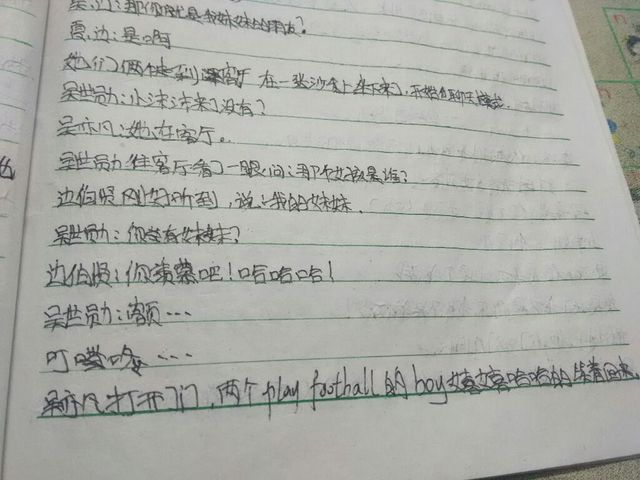 吴、边：那你就是我妹妹的朋友？
夏、边：是啊
她们俩个走到客厅 在一张沙发上坐下来了，开始聊天模式.
吴世勋：小沫沫来了没有？
吴亦凡：她在客厅。
吴世勋往客厅看了一眼问：那个女孩是谁？
边伯贤刚好听到，说：我的妹妹.
吴世勋：你有妹妹？
边伯贤：你猜猜吧！哈哈哈！
吴世勋：额…
叮咚…
吴亦凡打开了门，两个play football的boy嘻嘻哈哈的笑着回来